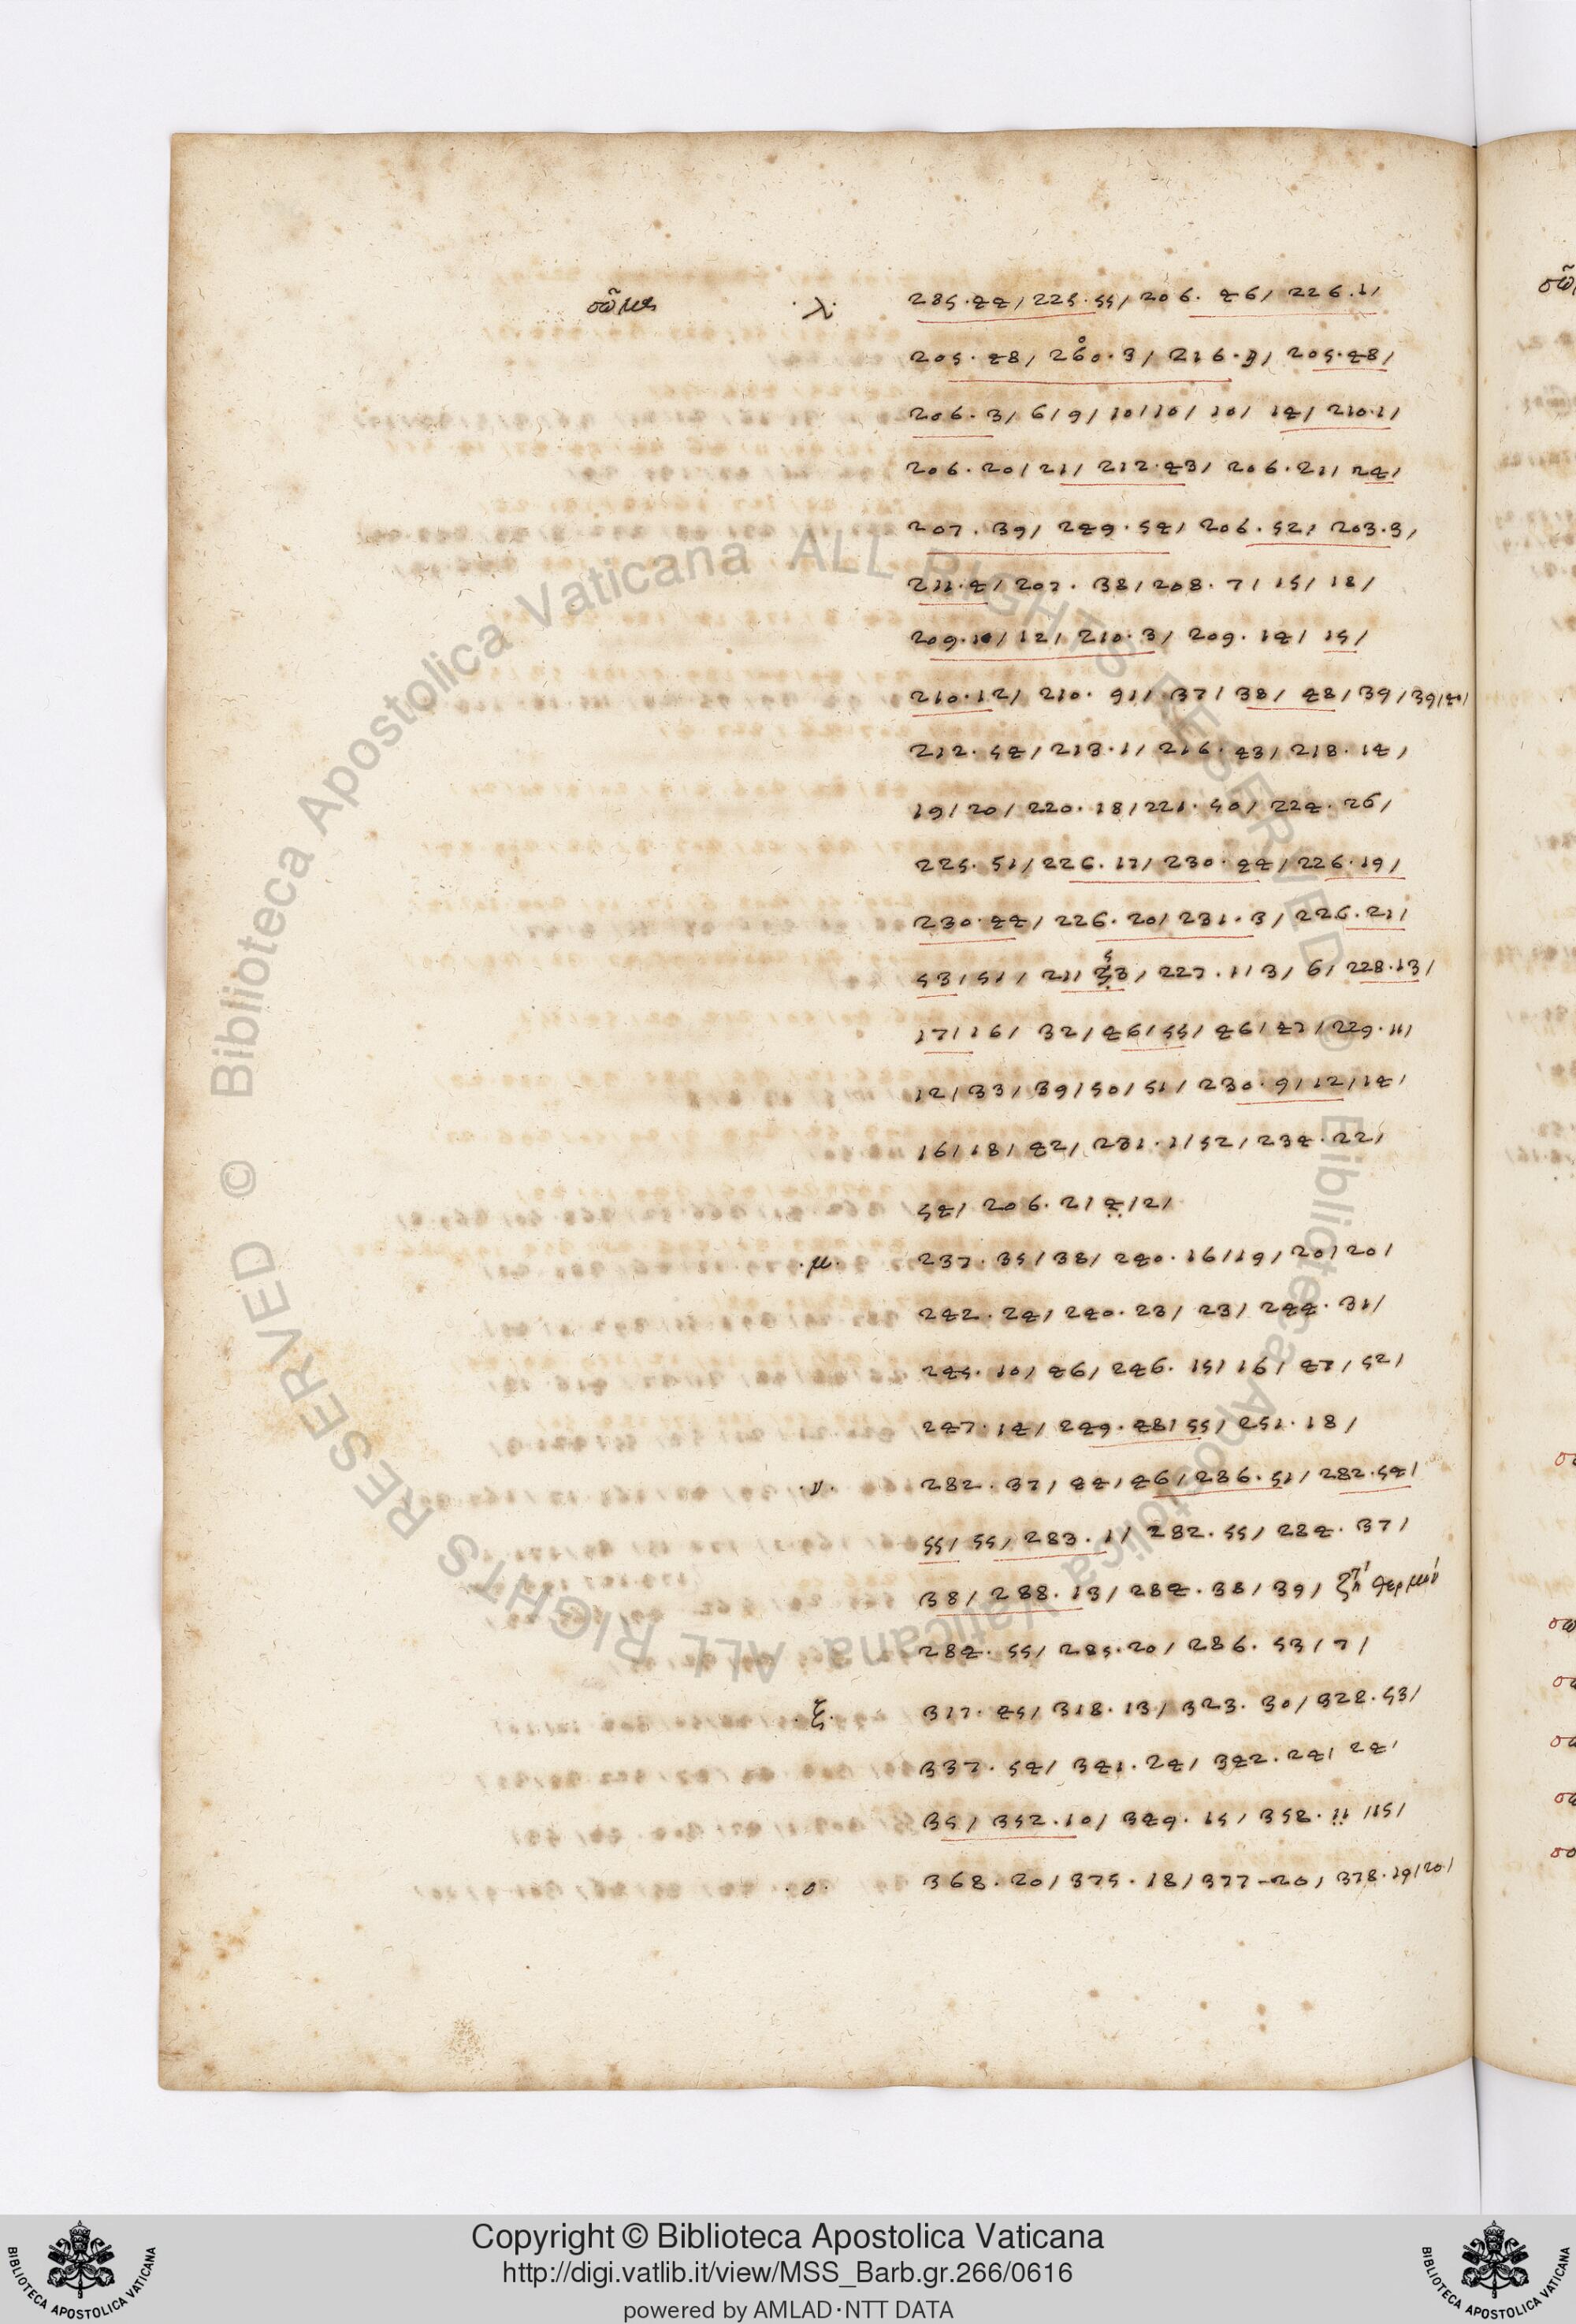 σῶμα ·λ· 285·44/225·55/206·46/226·1/
205·48/260·3/216·3/205·48/
206·3/6/9/10/10/10/14/210·1/
206·20/21/212·43/206·21/24/
207·39/249·54/206·52/203·3/
211·4/207·38/208·7/15/18/
209·10/12/210·3/209·14/15/
210·12/210·91/37/38/48/39/39/40/
212·54/213·1/216·43/218·14/
19/20/220·18/221·50/224·26/
225·51/226·17/230·44/226·19/
230·44/226·20/231·3/226·21/
53/51/21/53/227·1/3/6/228·13/
17/16/32/46/55/46/47/229·11/
12/33/39/50/51/230·9/12/14/
16/18/42/231·1/52/234·22/
54/206·21/4/2/
·μ· 237·35/38/240·16/19/20/20/
242·24/240·23/23/244·31/
245·10/46/246·15/16/47/52/
247·14/249·48/55/251·18/
·ν· 282·37/44/46/286·51/282·54/
55/55/283·1/282·55/284·37/
38/288·13/284·38/39/
284·55/285·20/286·53/7/
·ξ· 317·45/318·13/323·30/328·53/
337·54/341·24/342·24/24/
35/352·10/349·15/358·11/15/
·ο· 368·20/375·18/377-20/378·19/20/
Copyright © Biblioteca Apostolica Vaticana
http://digi.vatlib.it/view/MSS_Barb.gr.266/0616
powered by AMLAD·NTT DATA